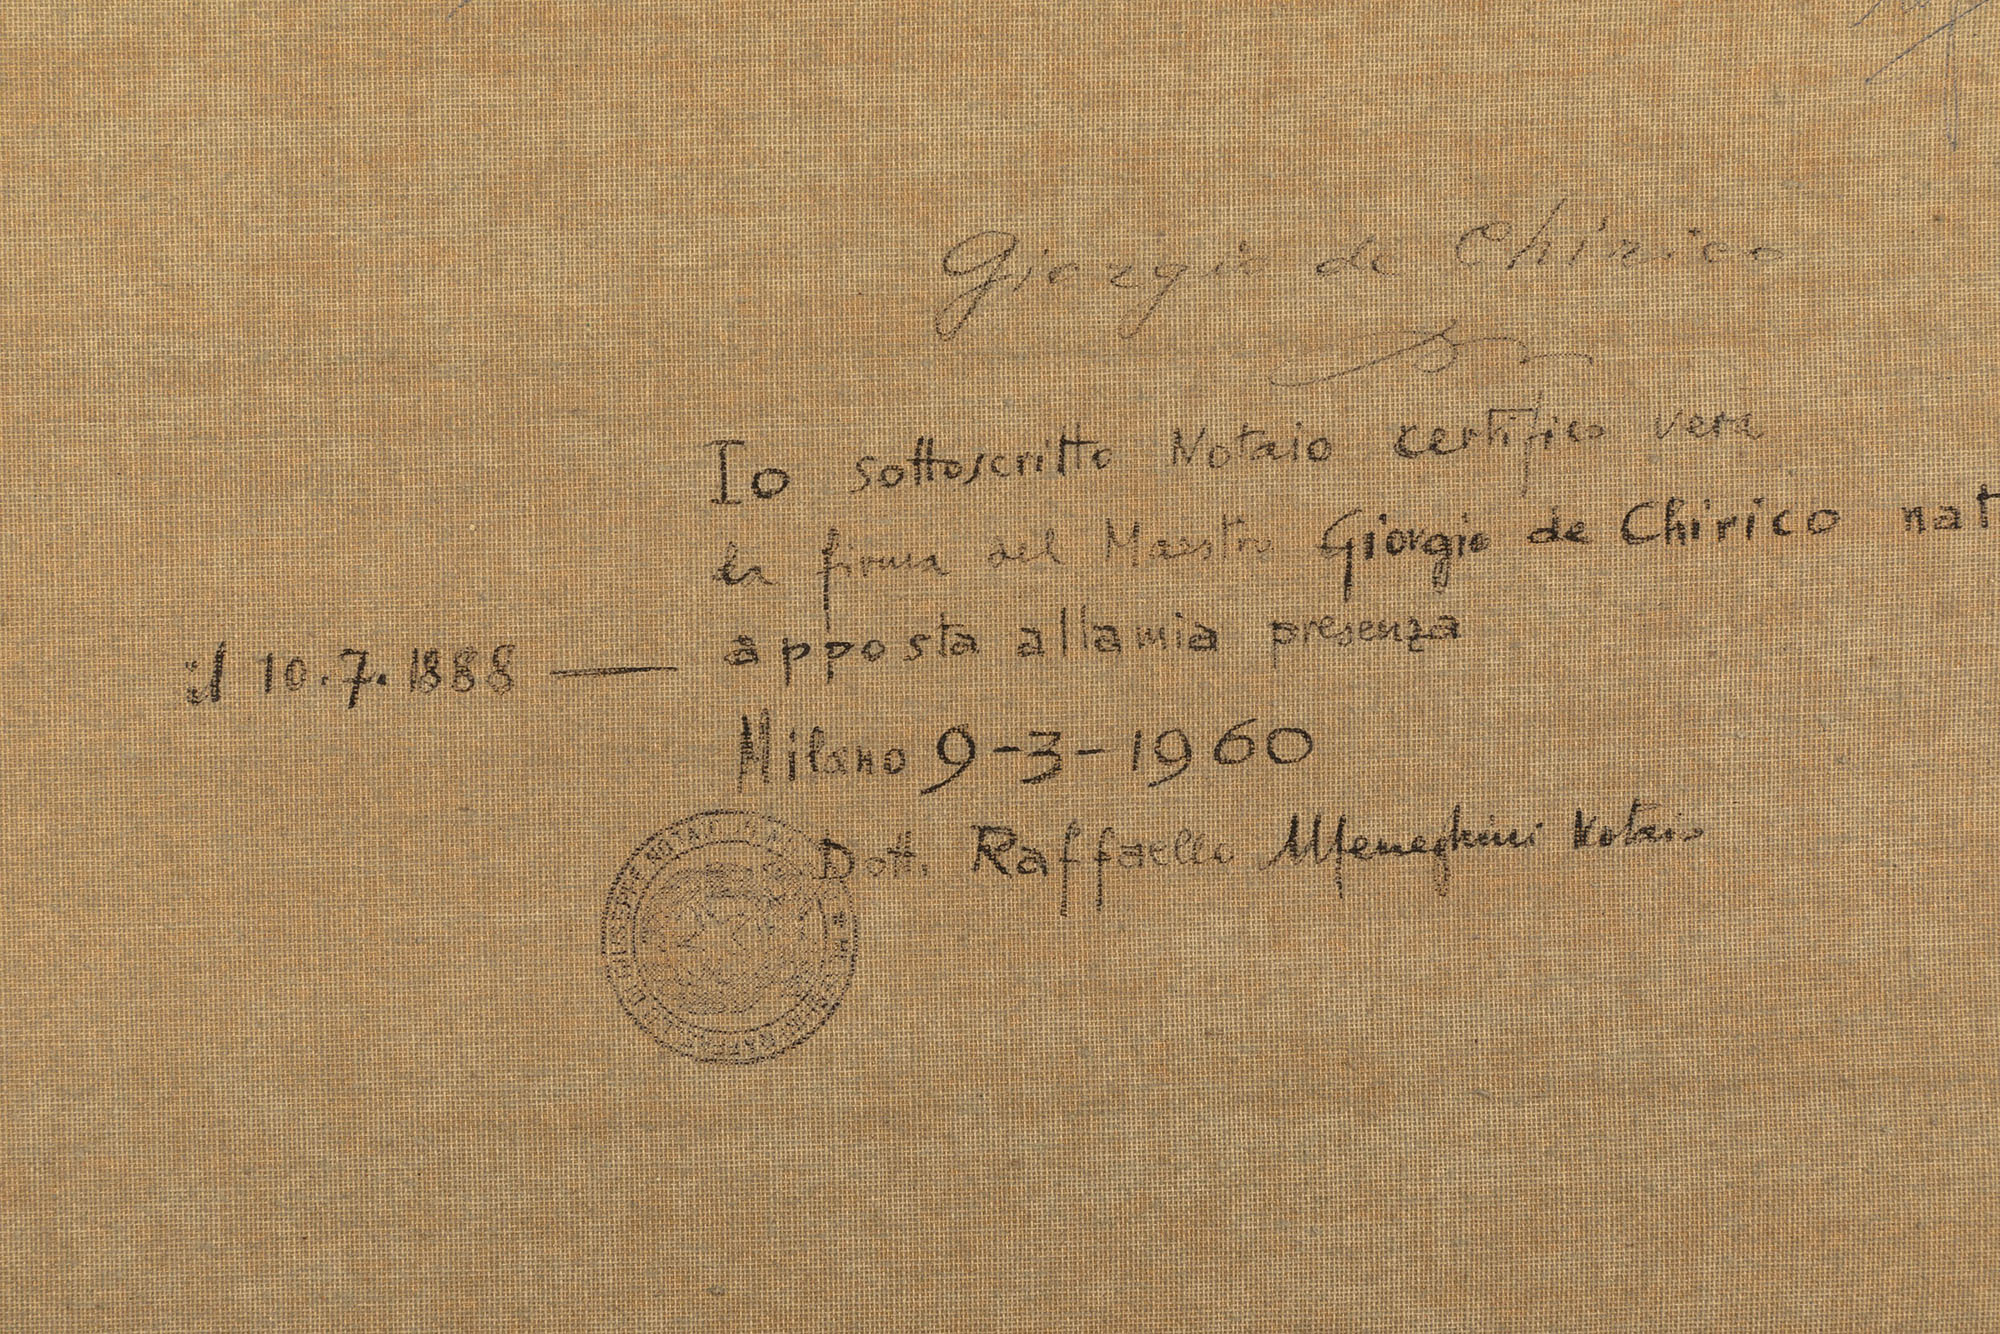 Giorgio de Chirico
Io sottoscritto Notaio certifico vera
la firma del Maestro Giorgio de Chirico nat
il 10.7.1888 — apposta alla mia presenza
Milano 9-3-1960
Dott. Raffaello Meneghini Notaio
DI GIUSEPPE NOTAIO